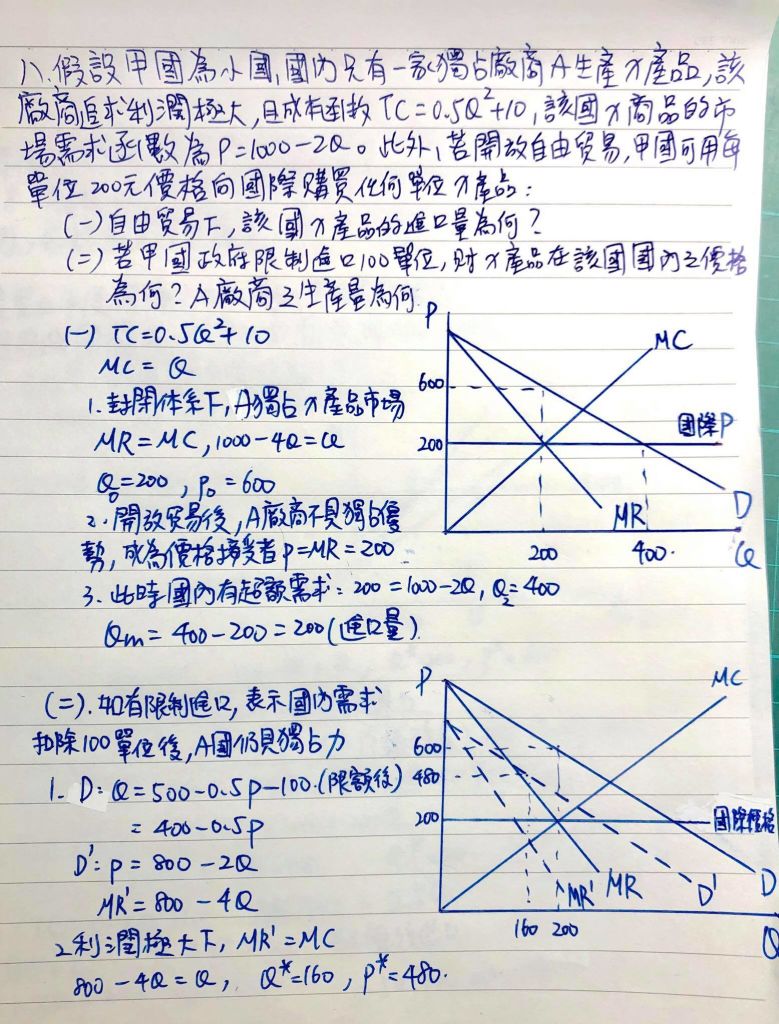 八、假設甲國為小國,國內只有一家獨占廠商A生產X產品,該
廠商追求利潤極大,且成本函數TC=0.5Q²+10,該國X商品的市
場需求函數為P=1000-2Q。此外,若開放自由貿易,甲國可用每
單位200元價格向國際購買任何單位X產品:
(一)自由貿易下,該國X產品的進口量為何?
(二)若甲國政府限制進口100單位,則X產品在該國國內之價格
為何?A廠商之生產量為何
(一) TC=0.5Q²+10
MC= Q
1.封閉体系下,A獨占X產品市場
MR=MC,1000-4Q=Q
Q₀=200,P₀=600
2.開放貿易後,A廠商不具獨占優
勢,成為價格接受者P=MR=200
3.此時國內有超額需求:200=1000-2Q,Q₂=400
Qm=400-200=200(進口量)
P
MC
600
國際P
200
MR
D
200
400.
Q
(二).如有限制進口,表示國內需求
扣除100單位後,A國仍具獨占力
1. D:Q=500-0.5P-100.(限額後)
=400-0.5P
D':P=800-2Q
MR'=800-4Q
2.利潤極大下,MR'=MC
800-4Q=Q, Q*=160,P*=480.
P
MC
600
480
200
國際價格
MR'
MR
D'
D
160
200
Q